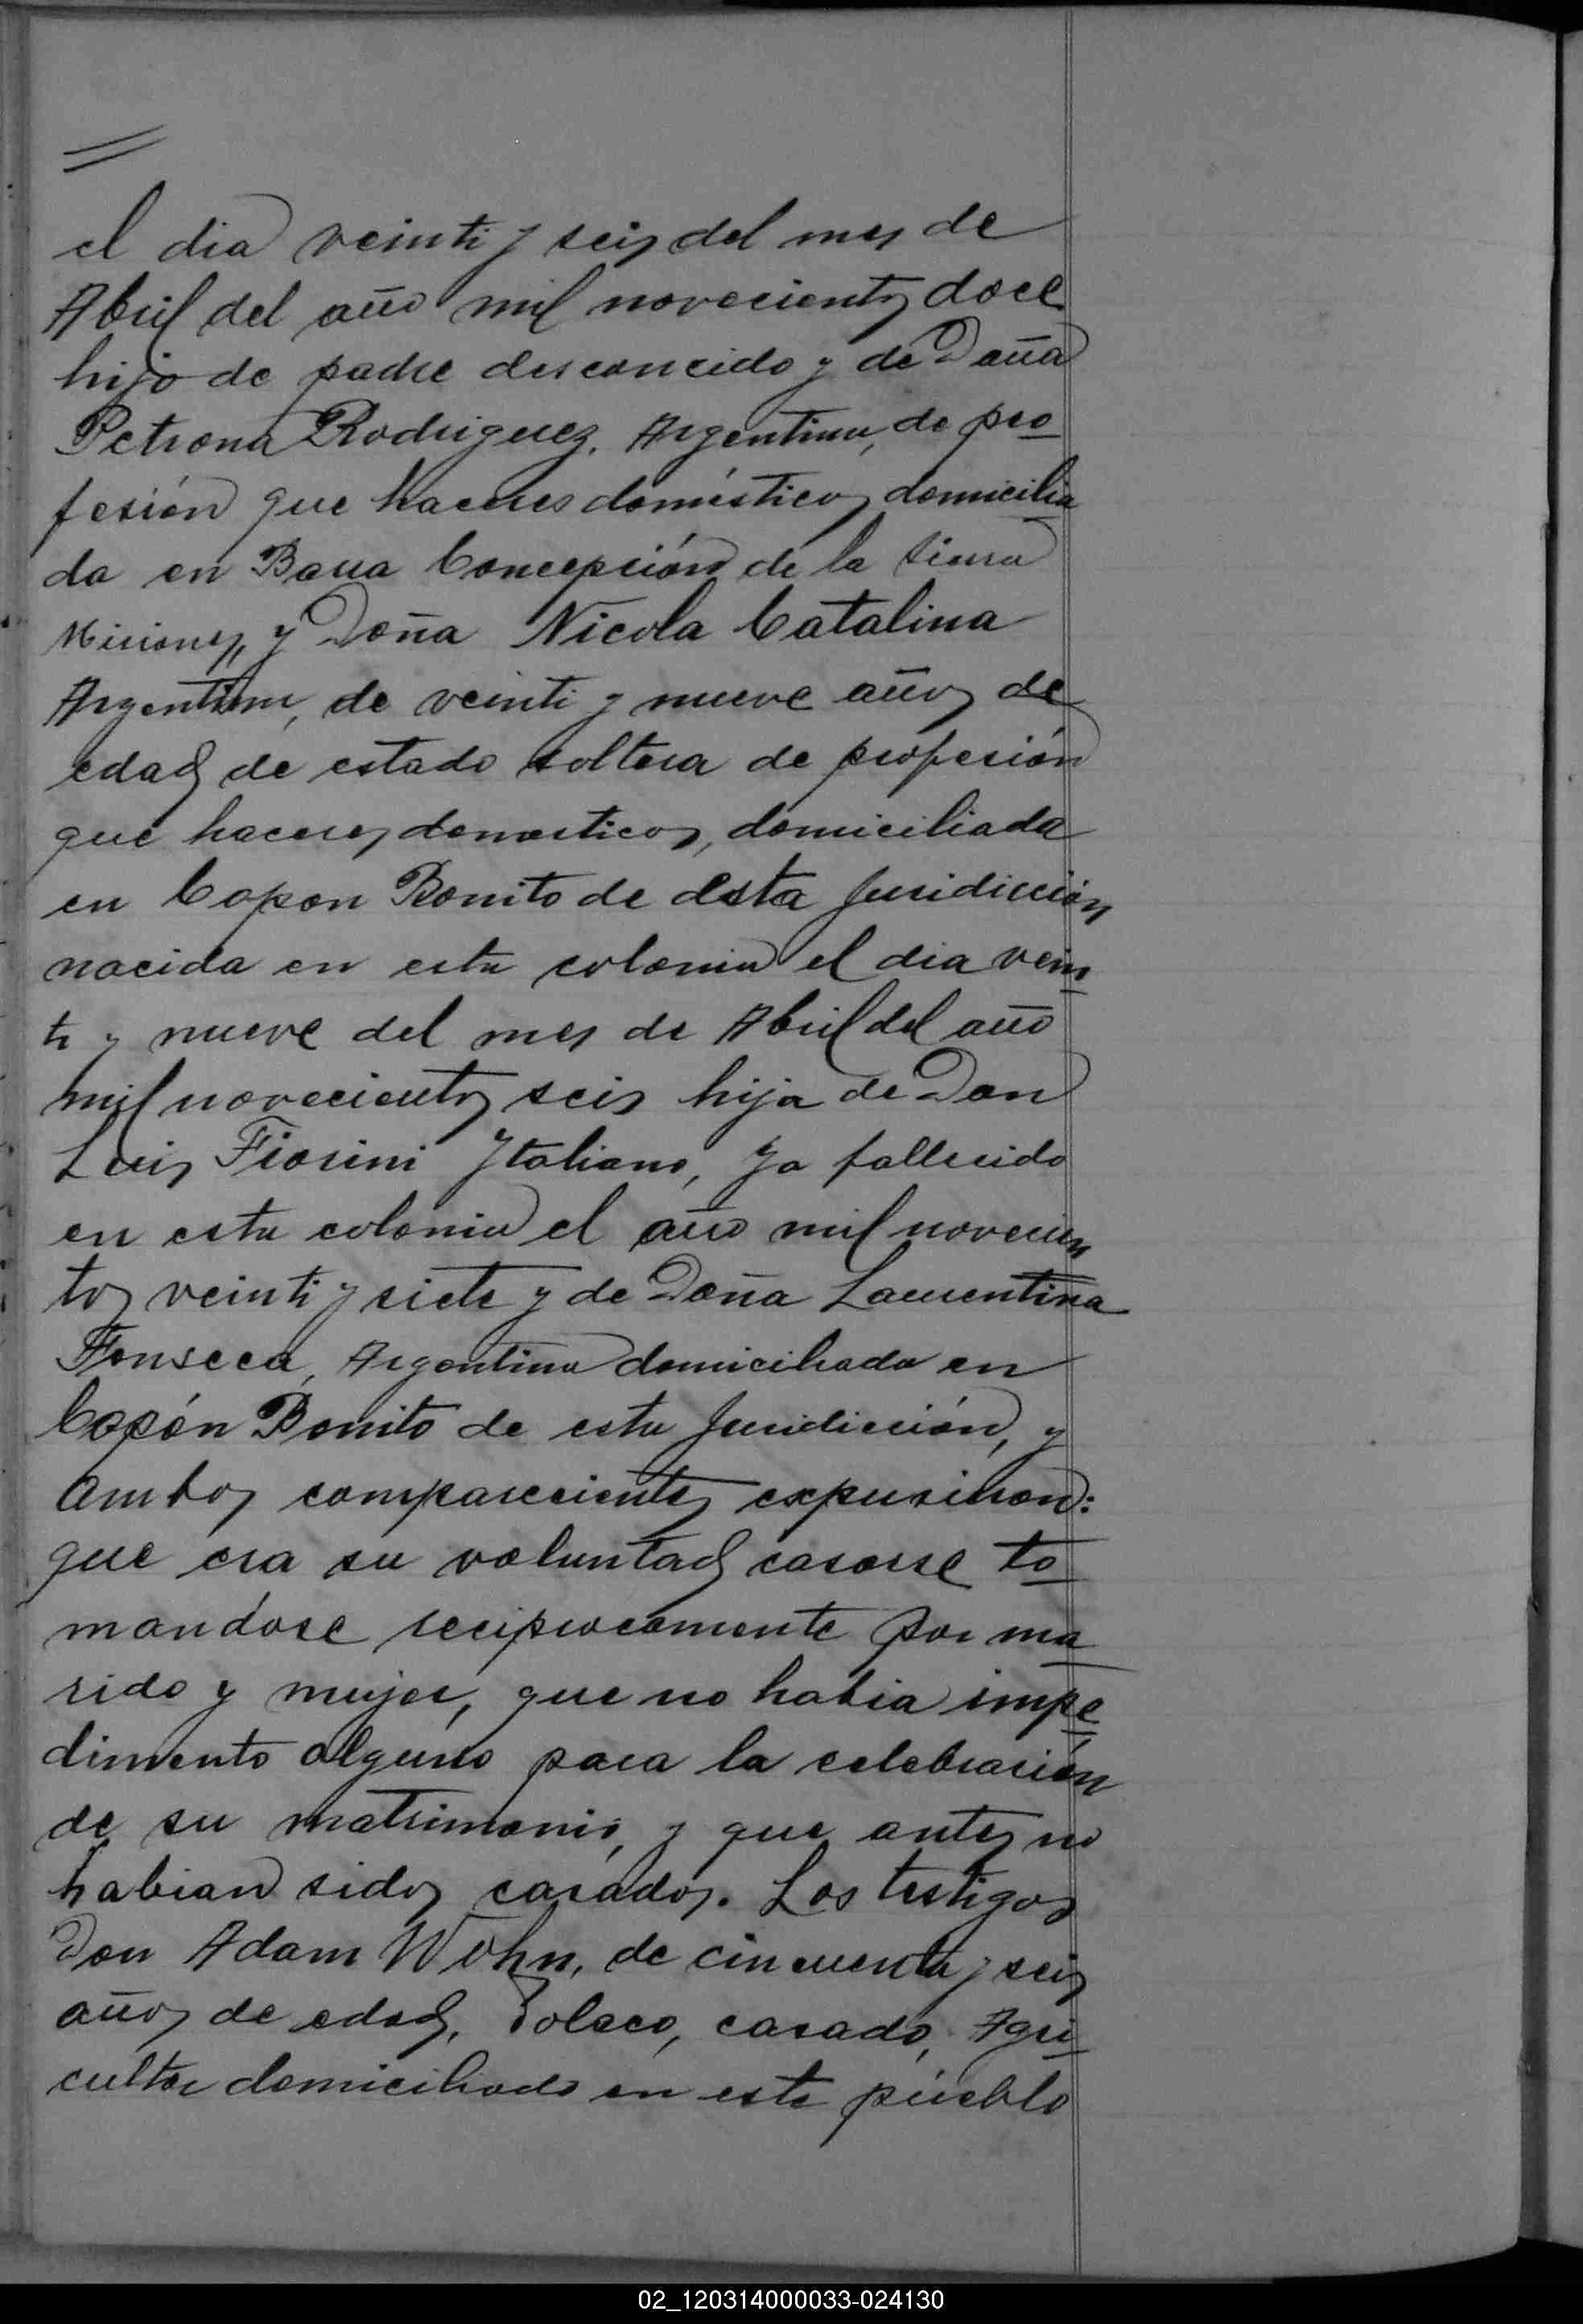 el dia veinti y seis del mes de
Abril del año mil novecientos doce
hijo de padre desconocido y de Doña
Petrona Rodriguez, Argentina, de pro
fesión que haceres domésticos domicilia
da en Barra Concepción de la Sierra
Misiones, y Doña Nicola Catalina
Argentina, de veinti y nueve años de
edad de estado soltera de profesión
que haceres domesticos, domiciliada
en Capon Bonito de esta Juridicción
nacida en esta colonia el dia vein
ti y nueve del mes de Abril del año
mil novecientos seis hija de Don
Luis Fiorini Ytaliano, ya fallecido
en esta colonia el año mil novecien
tos veinti y siete y de Doña Laurentina
Fonseca, Argentina domiciliada en
Capón Bonito de esta Juridicción, y
ambos comparecientes expusieron:
que era su voluntad casarse to
mandose reciprocamente por ma
rido y mujer, que no habia impe
dimento alguno para la celebración
de su matrimonio, y que antes no
habian sidos casados. Los testigos
Don Adam Wohn, de cincuenta y seis
años de edad, Polaco, casado, Agri
cultor domiciliado en este pueblo
02_120314000033-024130